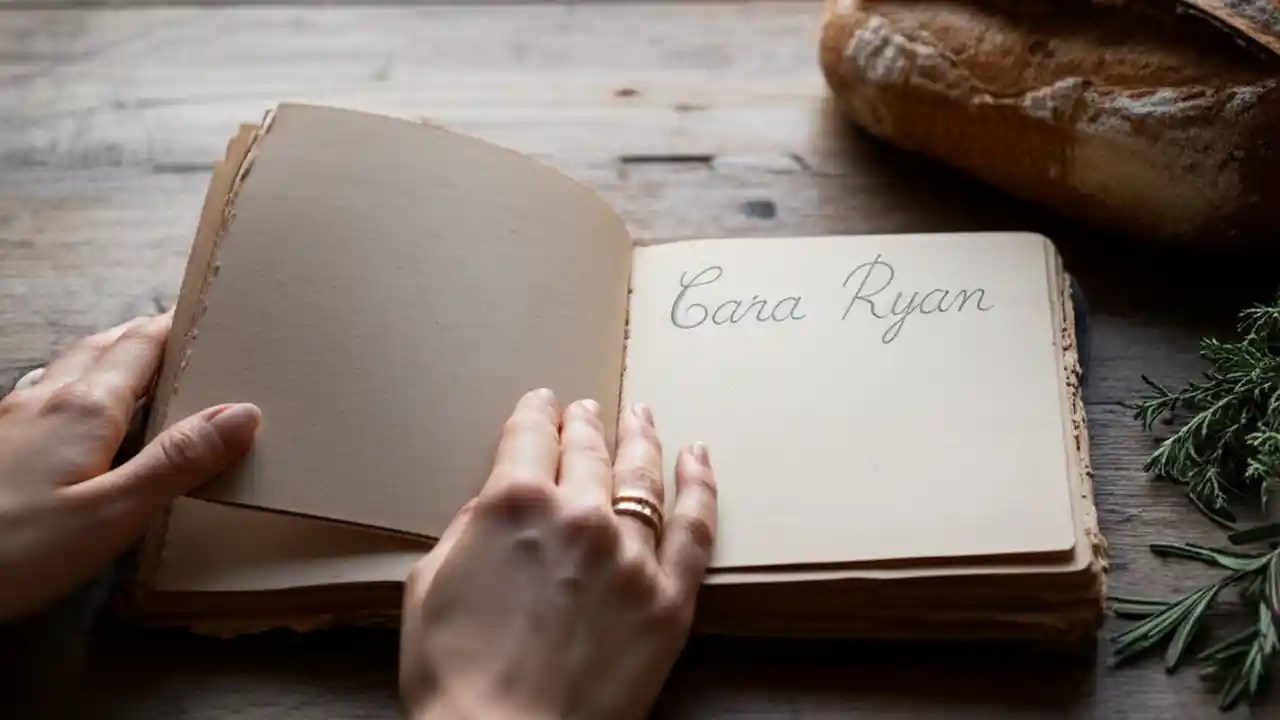 Cara Ryan